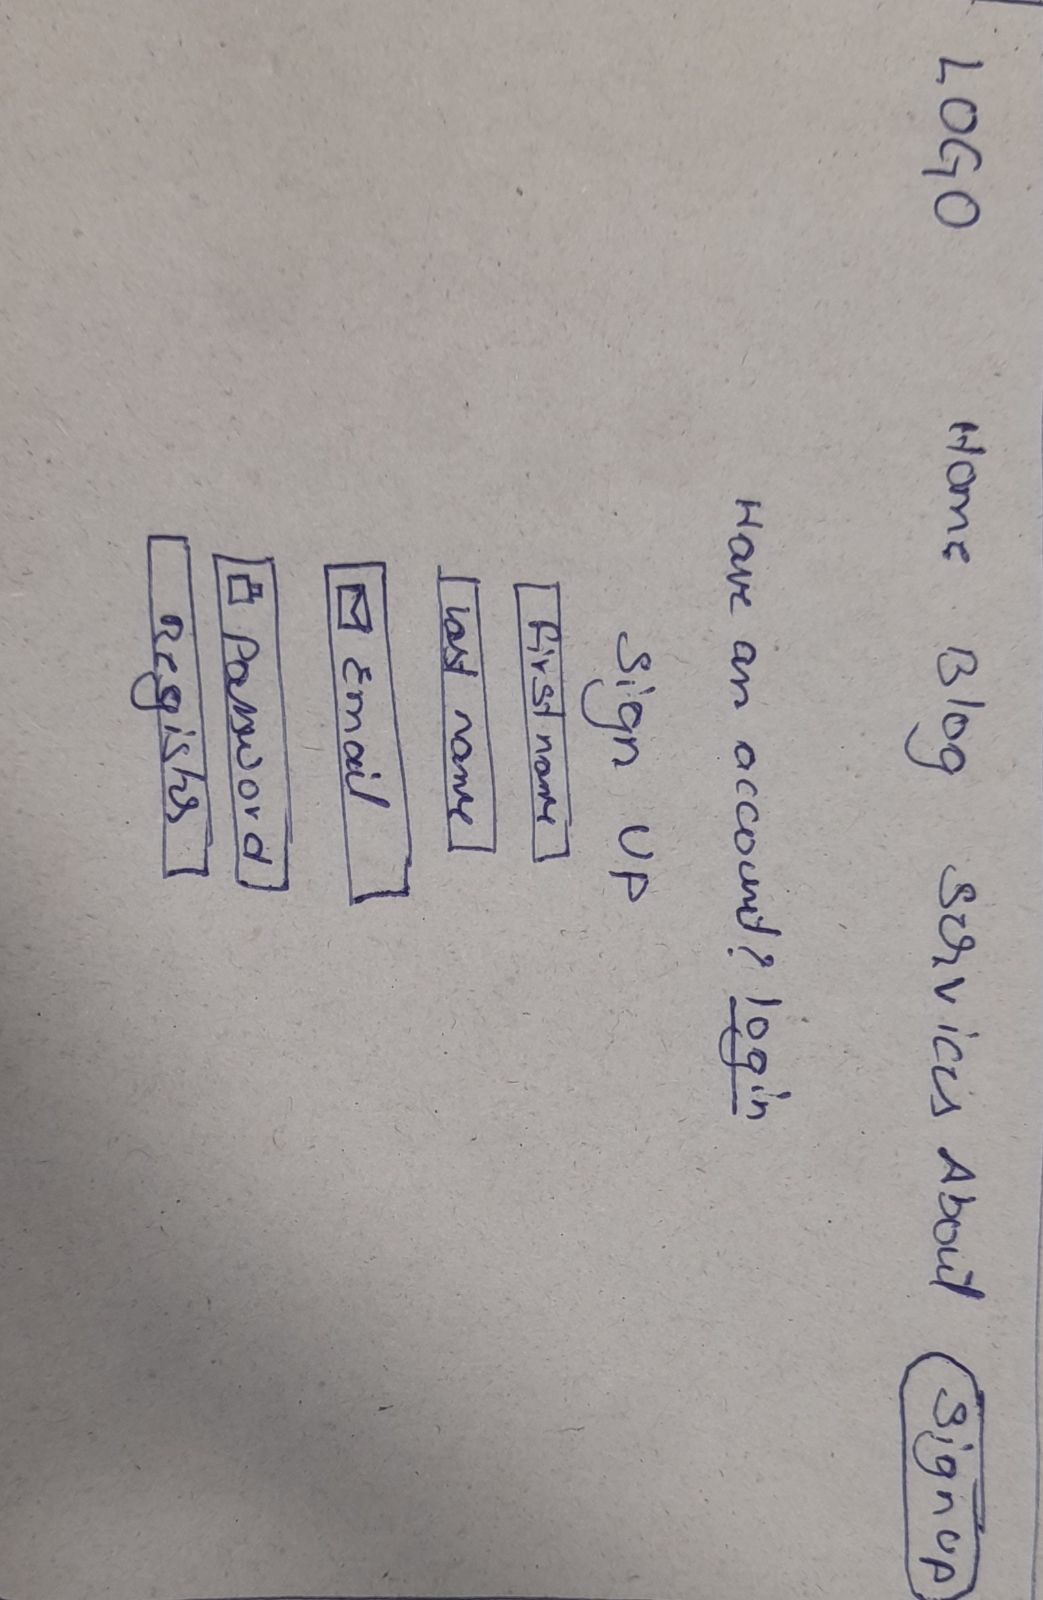 LOGO Home Blog Services About Sign up
Have an account? login
Sign UP
First name
Last name
Email
Password
Register